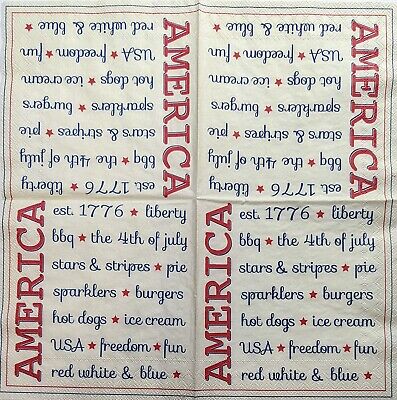 AMERICA
est. 1776 ★ liberty
bbq ★ the 4th of july
stars & stripes ★ pie
sparklers ★ burgers
hot dogs ★ ice cream
USA ★ freedom ★ fun
red white & blue ★
AMERICA
est. 1776 ★ liberty
bbq ★ the 4th of july
stars & stripes ★ pie
sparklers ★ burgers
hot dogs ★ ice cream
USA ★ freedom ★ fun
red white & blue ★
AMERICA
est. 1776 ★ liberty
bbq ★ the 4th of july
stars & stripes ★ pie
sparklers ★ burgers
hot dogs ★ ice cream
USA ★ freedom ★ fun
red white & blue ★
AMERICA
est. 1776 ★ liberty
bbq ★ the 4th of july
stars & stripes ★ pie
sparklers ★ burgers
hot dogs ★ ice cream
USA ★ freedom ★ fun
red white & blue ★